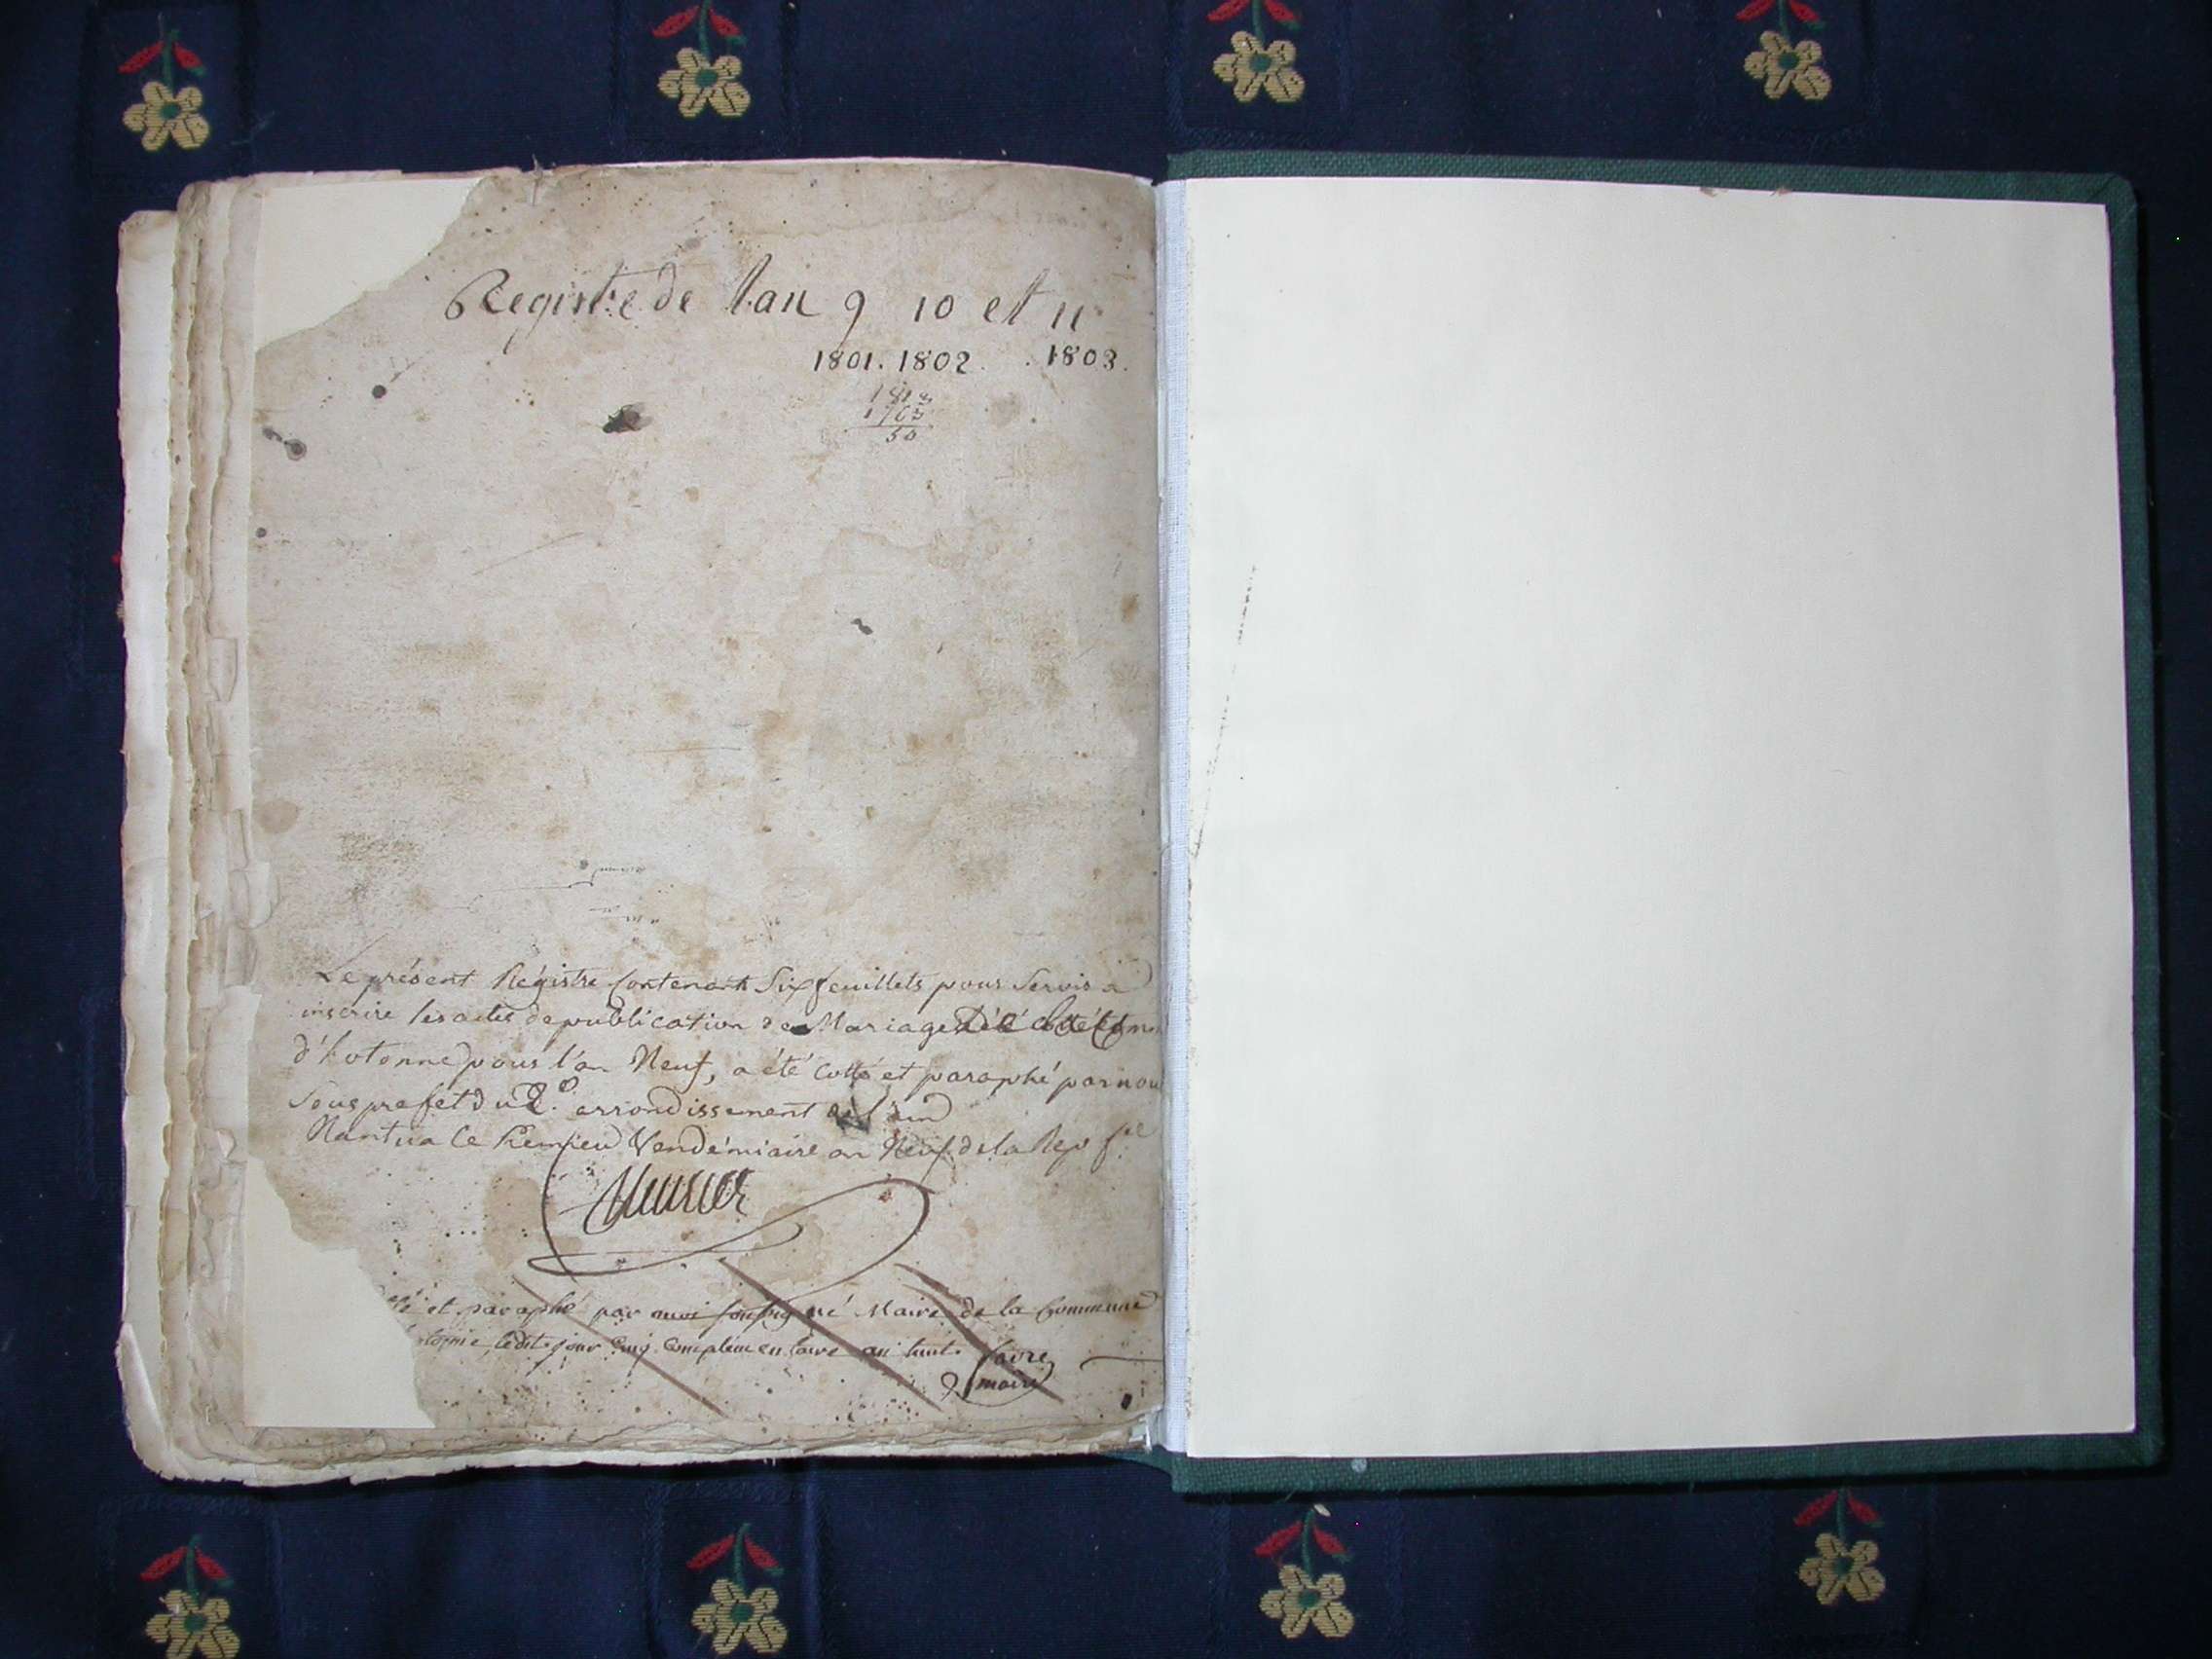 Registre de l'an 9 10 et 11
1801. 1802. . 1803.
1813
1763
50
Le présent Régistre Contenant Six feuillets pour Servir à
inscrire les actes de publication de Mariage
d'hotonne pour l'an Neuf, a été Cotté et paraphé par nou
Sous prefet du 2.e arrondissement de l'ain
Nantua le Premier Vendémiaire an Neuf de la Rep f.se
et paraphé par moi soussigné Maire de la Commune
ledit jour Cinq Complémentaire an huit.
favre
maire